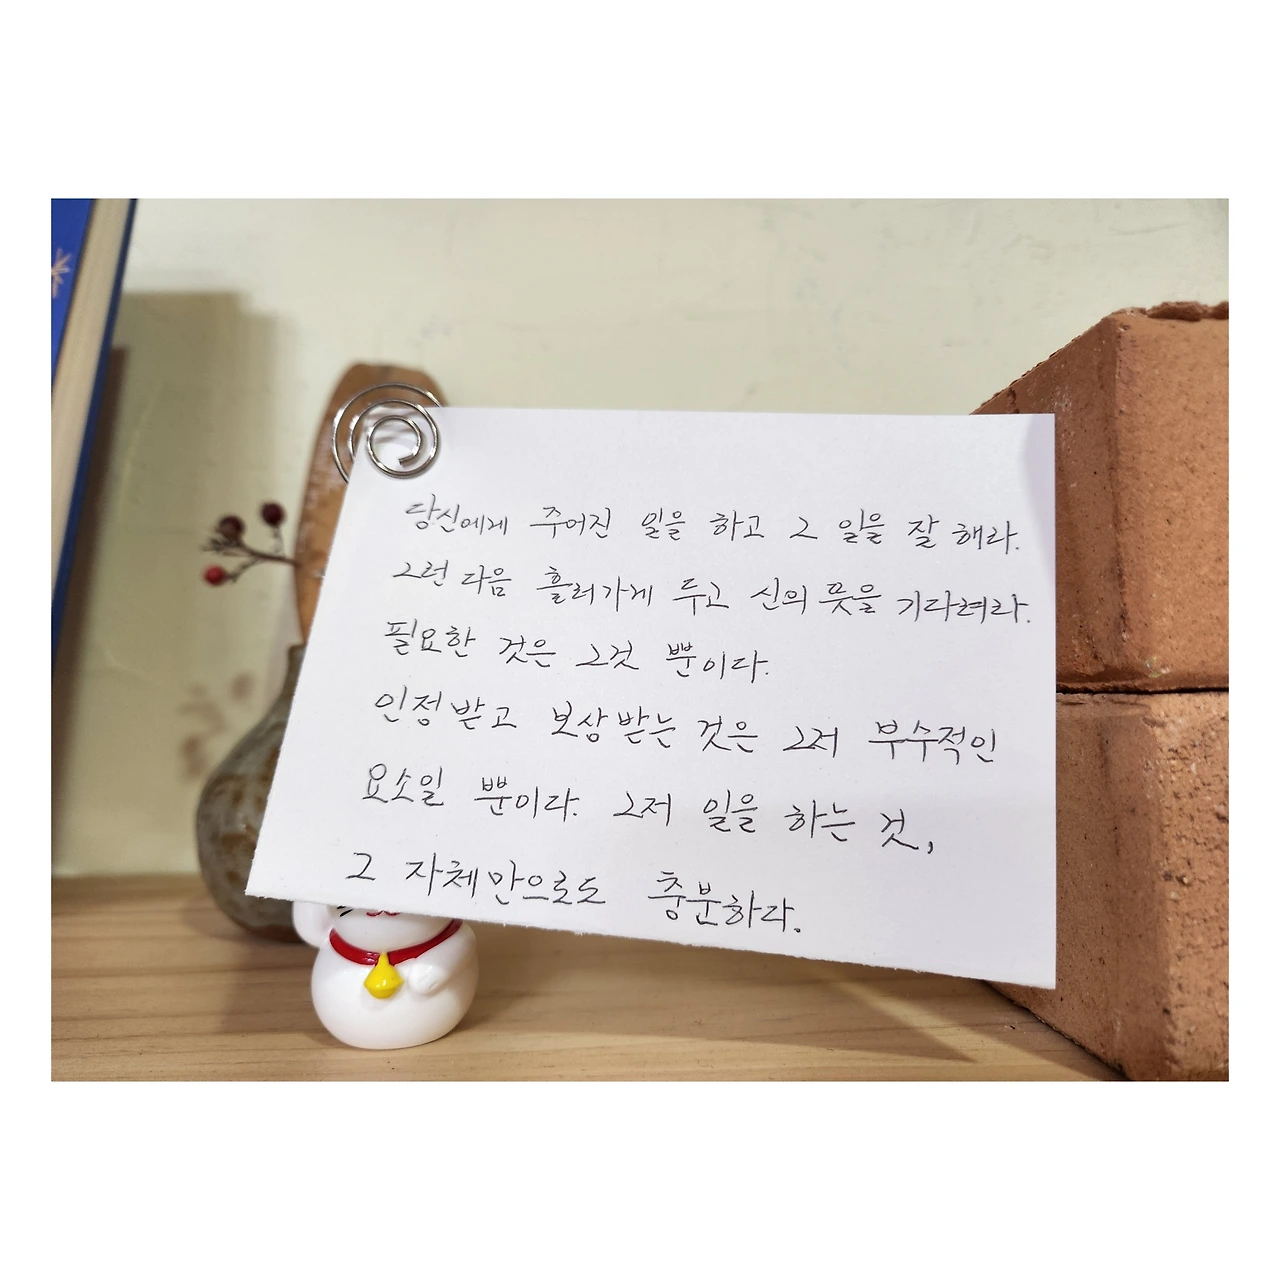 당신에게 주어진 일을 하고 그 일을 잘 해라.
그런 다음 흘러가게 두고 신의 뜻을 기다려라.
필요한 것은 그것 뿐이다.
인정받고 보상받는 것은 그저 부수적인
요소일 뿐이다. 그저 일을 하는 것,
그 자체만으로도 충분하다.